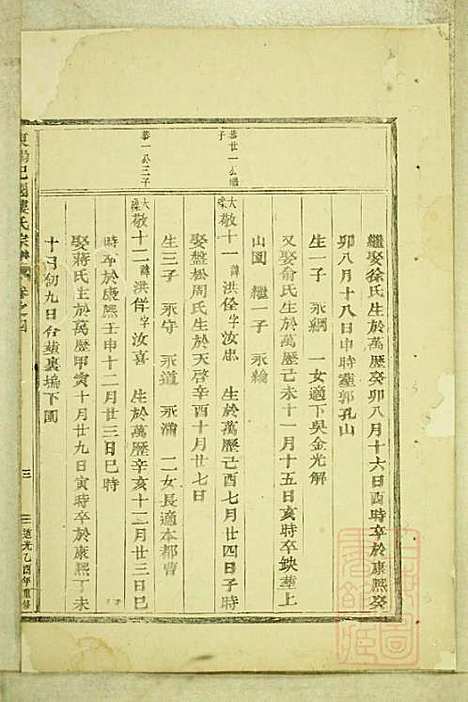 繼娶徐氏生於萬歷癸卯八月十六日酉時卒於康熙癸
卯八月十八日申時塟郭孔山
生一子 永綱 一女適下吳金光解
又娶俞氏生於萬歷己未十一月十五日亥時卒缺葬上
山園 繼一子 永綸
恭世一公繼子
大樑敬十一諱洪佺字汝忠 生於萬歷己酉七月廿四日子時
娶盤松周氏生於天啓辛酉十月廿七日
生三子 永守 永道 永浦 二女長適本都曹
恭一公三子
大樑敬十二諱洪佯字汝喜 生於萬歷辛亥十二月廿三日巳
時卒於康熙壬申十二月廿三日巳時
娶蔣氏生於萬歷甲寅十月廿九日寅時卒於康熙丁未
十月初九日合塟裏塢下園
氏宗譜 卷之四
三
道光乙酉年重修